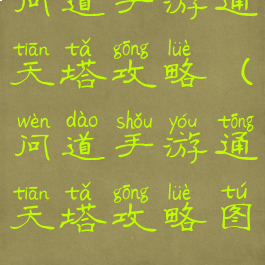 问道手游通
tiān tǎ gōng lüè
天塔攻略(
wèn dào shǒu yóu tōng
问道手游通
tiān tǎ gōng lüè tú
天塔攻略图